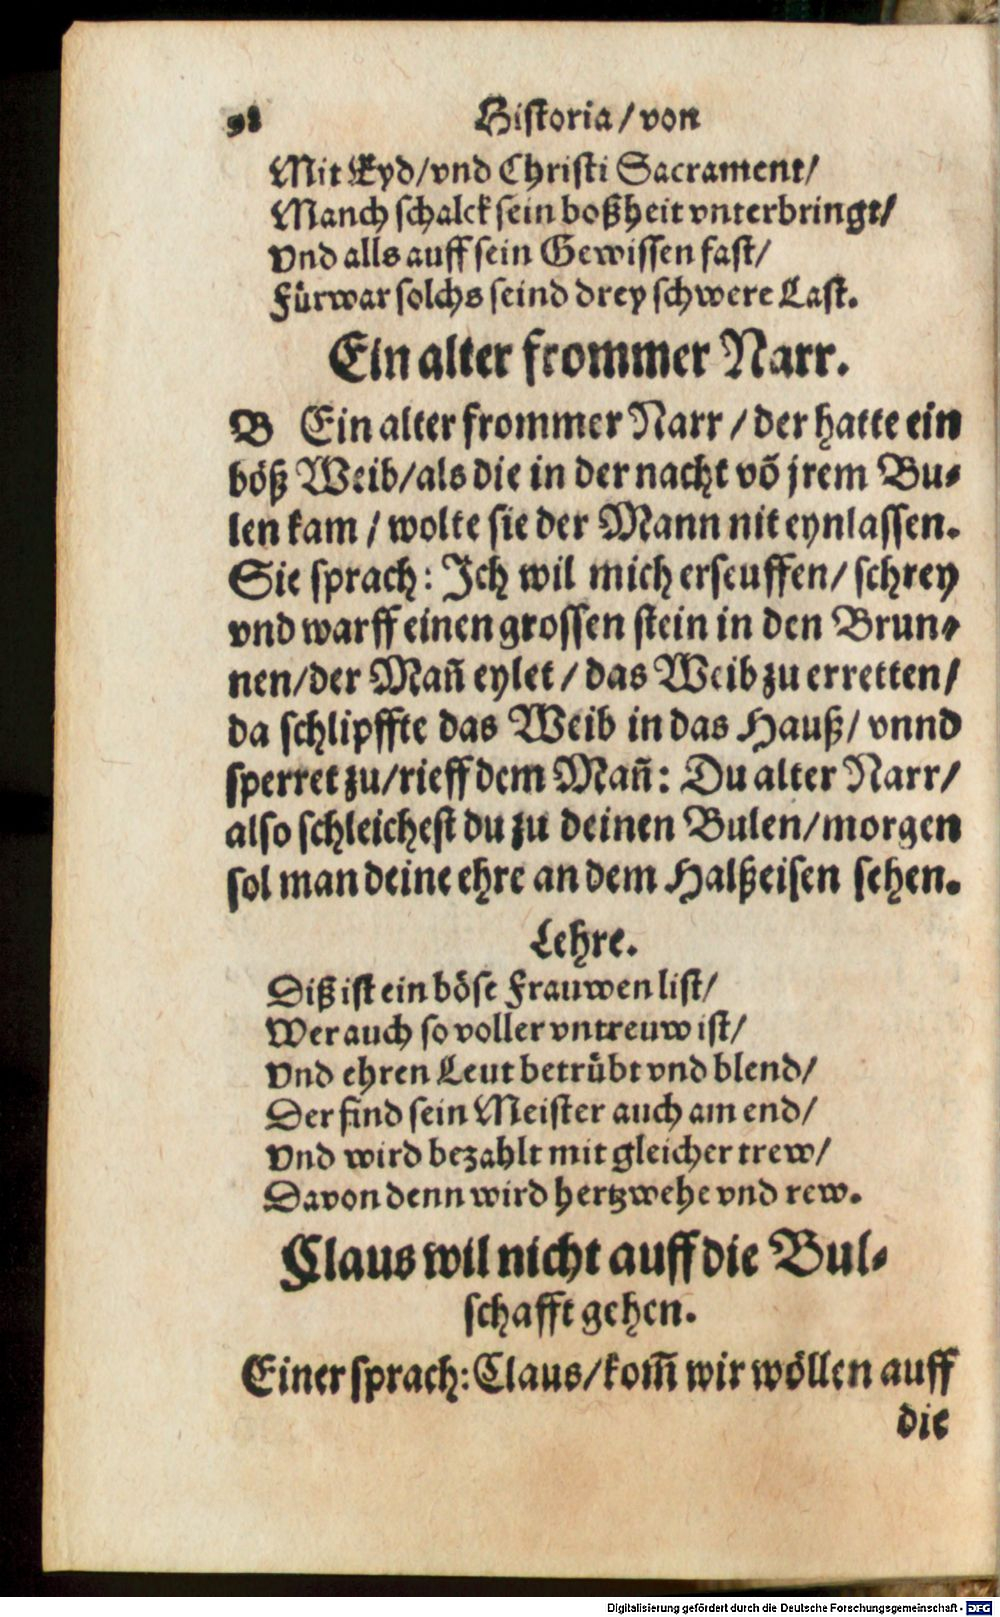 98 Historia/ von
Mit Eyd/ vnd Christi Sacrament/
Manch schalck sein boßheit vnterbringt/
Vnd alls auff sein Gewissen fast/
Fürwar solchs seind drey schwere Last.
Ein alter frommer Narr.
B Ein alter frommer Narr / der hatte ein
böß Weib/ als die in der nacht võ jrem Bu-
len kam / wolte sie der Mann nit eynlassen.
Sie sprach: Ich wil mich erseuffen/ schrey
vnd warff einen grossen stein in den Brun-
nen/ der Mañ eylet / das Weib zu erretten/
da schlipffte das Weib in das Hauß/ vnnd
sperret zu/ rieff dem Mañ: Du alter Narr/
also schleichest du zu deinen Bulen/ morgen
sol man deine ehre an dem Halßeisen sehen.
Lehre.
Diß ist ein böse Frauwen list/
Wer auch so voller vntreuw ist/
Vnd ehren Leut betrübt vnd blend/
Der find sein Meister auch am end/
Vnd wird bezahlt mit gleicher trew/
Davon denn wird hertzwehe vnd rew.
Claus wil nicht auff die Bul-
schafft gehen.
Einer sprach: Claus/ kom̃ wir wöllen auff
die
Digitalisierung gefördert durch die Deutsche Forschungsgemeinschaft - DFG